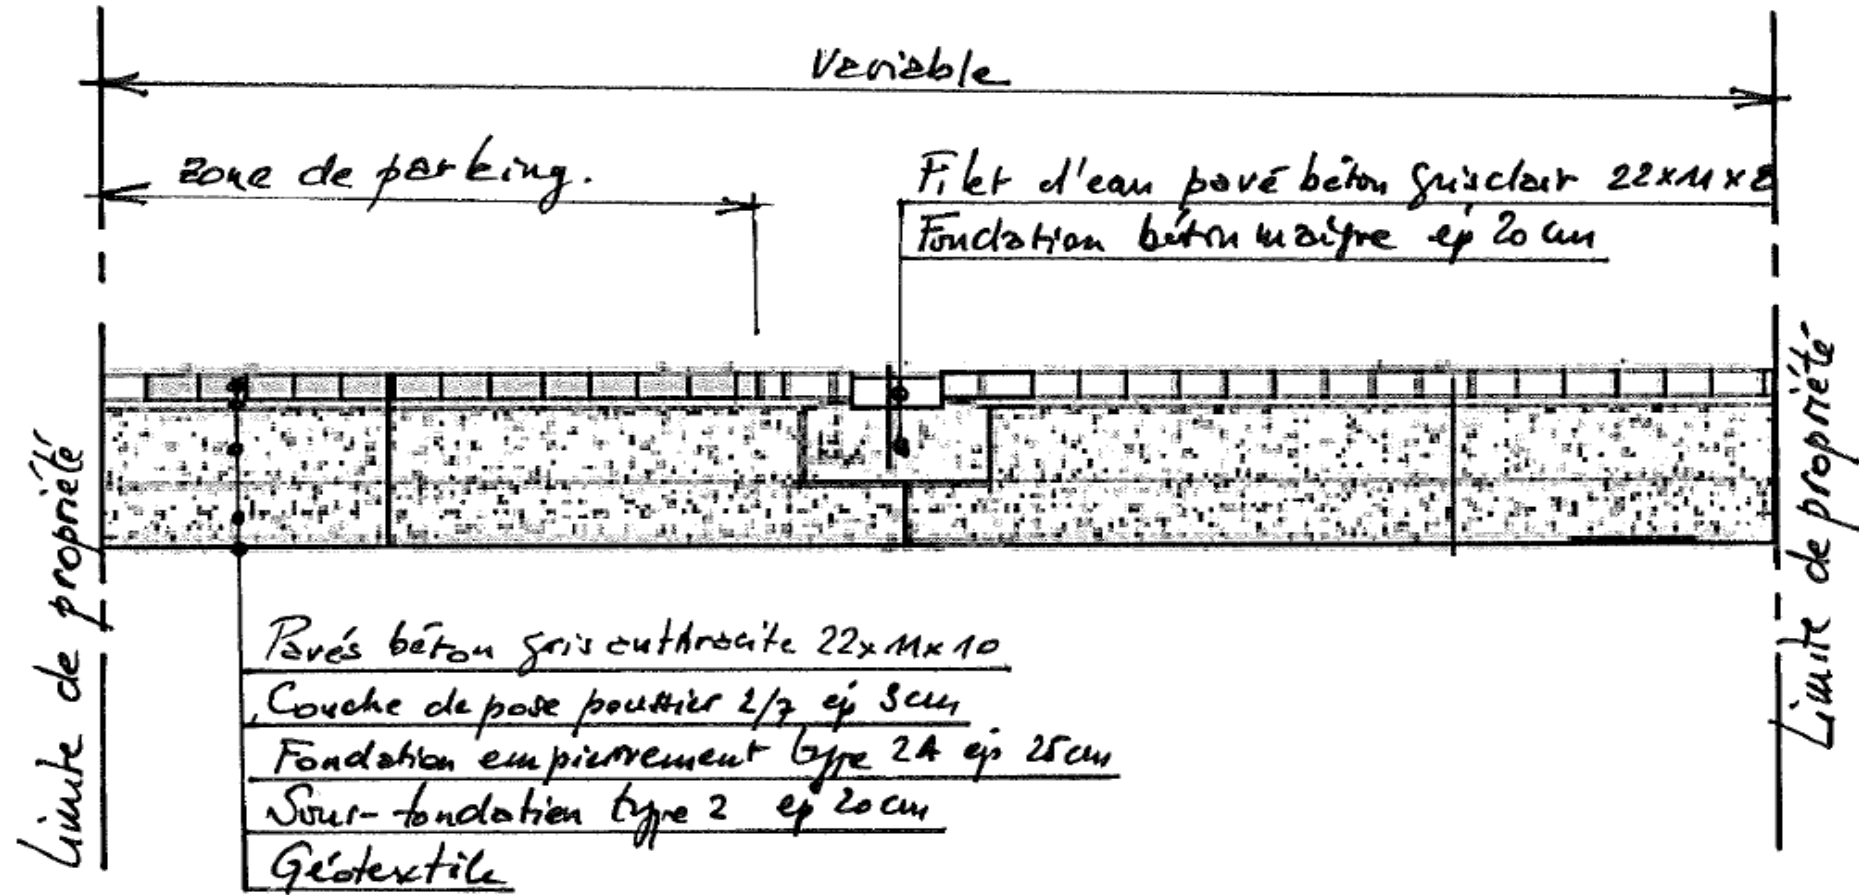 Variable
zone de parking.
Filet d'eau pavé béton gris clair 22x11x8
Fondation béton maigre ép 20 cm
Limite de propriété
Limite de propriété
Pavés béton gris anthracite 22x11x10
Couche de pose poussier 2/7 ép 3cm
Fondation empierrement type 2A ép 25cm
Sous-fondation type 2 ép 20cm
Géotextile